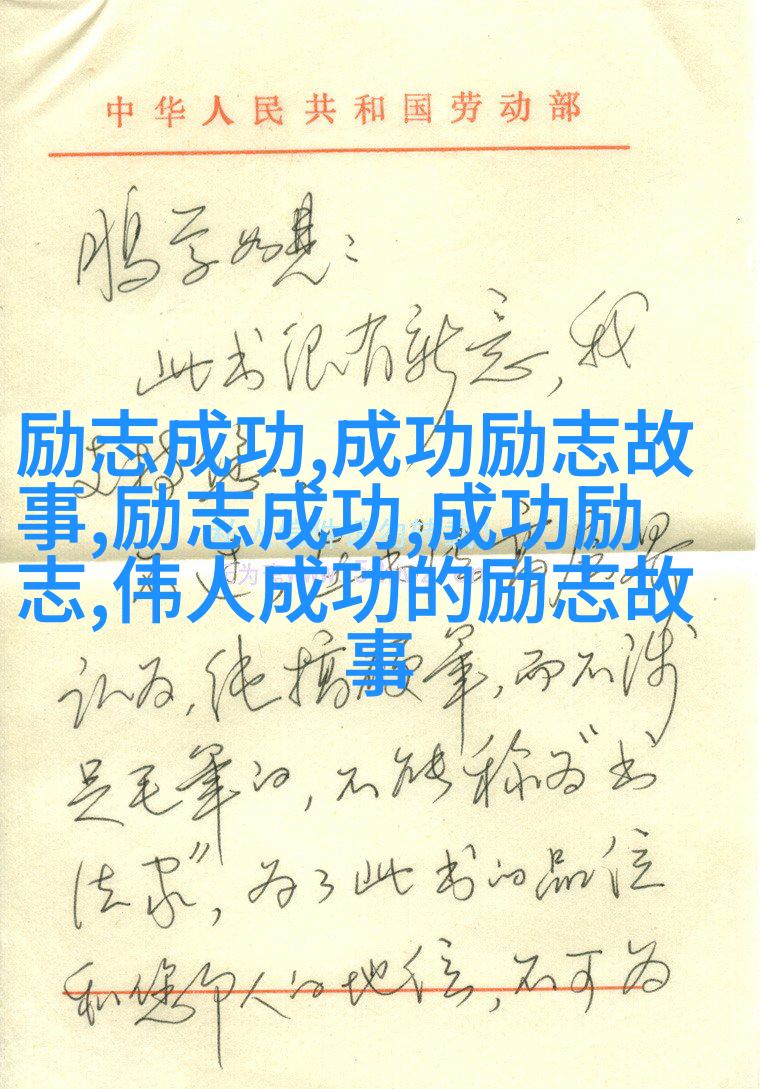 中华人民共和国劳动部
此书很有新意,我
支持
励志成功,成功励志故
事,励志成功,成功励
志,伟人成功的励志故
事
认为,纯搞硬笔,而不涉
足毛笔的,不能称为"书
法家",为了此书的品位
和您人的地位,不可为